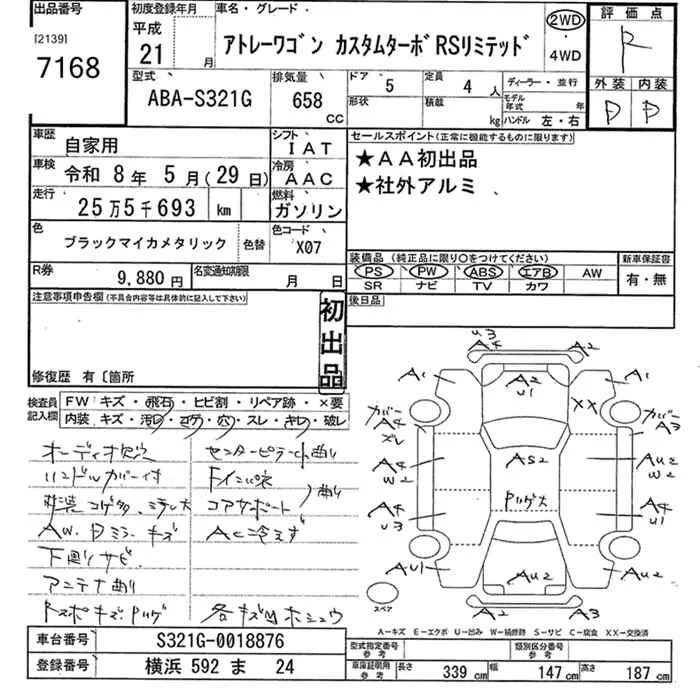 出品番号
[2139]
7168
初度登録年月
平成
21
月
車名・グレード
アトレーワゴン カスタムターボRSリミテッド
2WD
・
4WD
評価点
R
外装 内装
D D
型式
ABA-S321G
排気量
658
CC
ドア
5
定員
4 人
形状
積載
kg
ディーラー・並行
モデル年式
年
ハンドル 左・右
車歴
自家用
シフト
IAT
車検
令和 8年 5月(29日)
冷房
AAC
走行
25万5千693 km
燃料
ガソリン
色
ブラックマイカメタリック
色替
色コード
X07
R券
9,880円
名変通知期限
月 日
セールスポイント(正常に機能するものに限ります)
★AA初出品
★社外アルミ
装備品(純正品に限り○をつけてください)
PS PW ABS エアB AW
SR ナビ TV カワ
新車保証書
有・無
後日品
注意事項申告欄(不具合内容等は具体的に記入して下さい)
初出品
修復歴 有〔箇所
検査員記入欄
FW キズ・飛石・ヒビ割・リペア跡・×要
内装 キズ・汚レ・コゲ・穴・スレ・キレ・破レ
オーディオ欠
ハンドルカバー付
センターピラー
AW、ドミラーキズ
コアサポート
曲り
AC冷えず
下廻りサビ
アンテナ曲り
各キズ凹ホシュウ
U3
A4
A2
A1
A2
U1
A1
カバー
A4
XX
カバー
A3
A4
W2
AS2
AU2
W2
A4
U3
A4
U1
AU1
AU2
AU2
スペア
A2
A3
A-キズ E-エクボ U-凹み W-補修跡 S-サビ C-腐食 XX-交換済
車台番号
S321G-0018876
登録番号
横浜 592 ま 24
型式指定番号
参考
類別区分番号
参考
車庫証明用
参考
長さ
339 cm
幅
147 cm
高さ
187 cm